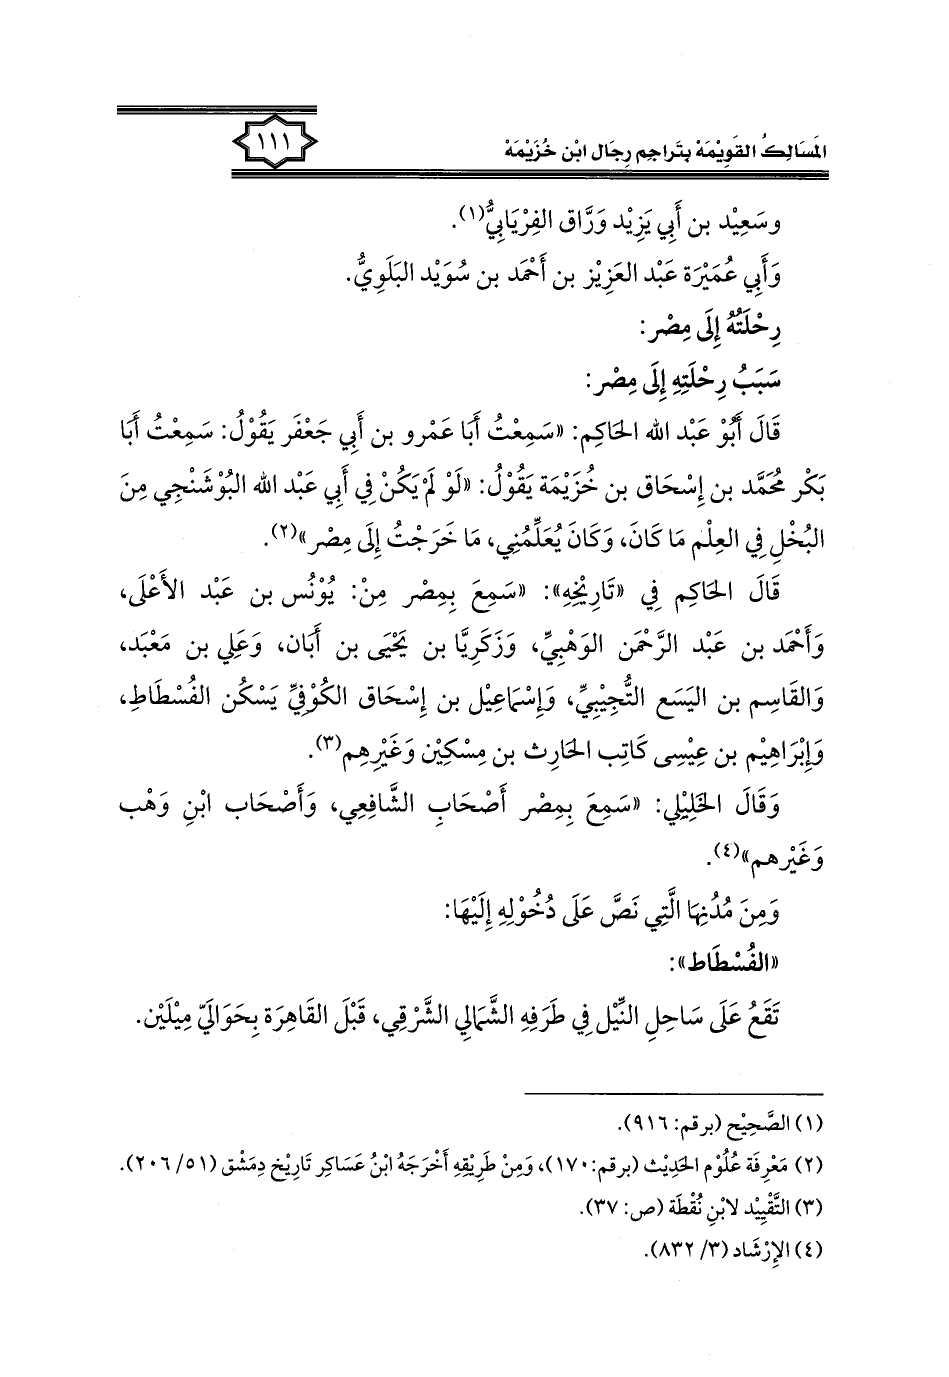 المَسَالِكُ القَوِيْمَةْ بِتَرَاجِم رِجَال ابْن خُزَيْمَةْ
١١١
وسَعِيْد بن أَبي يَزِيْد وَرَّاق الفِرْيَابيُّ(١).
وَأَبي عُمَيْرَة عَبْد العَزِيْز بن أَحْمَد بن سُوَيْد البَلَوِيُّ.
رِحْلَتُهُ إِلَى مِصْر:
سَبَبُ رِحْلَتِهِ إِلَى مِصْر:
قَالَ أَبُوْ عَبْد الله الحَاكِم: «سَمِعْتُ أَبَا عَمْرو بن أَبي جَعْفَر يَقُوْلُ: سَمِعْتُ أَبَا
بَكْر مُحَمَّد بن إِسْحَاق بن خُزَيْمَة يَقُوْلُ: «لَوْ لَمْ يَكُنْ فِي أَبي عَبْد الله البُوْشَنْجي مِنَ
البُخْلِ فِي العِلْم مَا كَانَ، وَكَانَ يُعَلِّمُنِي، مَا خَرَجْتُ إِلَى مِصْر»(٢).
قَالَ الحَاكِم فِي «تَارِيْخِهِ»: «سَمِعَ بِمِصْر مِنْ: يُوْنُس بن عَبْد الأَعْلَى،
وَأَحْمَد بن عَبْد الرَّحْمَن الوَهْبِيِّ، وَزَكَرِيَّا بن يَحْيَى بن أَبَان، وَعَلِي بن مَعْبَد،
وَالقَاسِم بن اليَسَع التُّجِيْبِيِّ، وَإِسْمَاعِيْل بن إِسْحَاق الكُوْفِيِّ يَسْكُن الفُسْطَاطِ،
وَإِبْرَاهِيْم بن عِيْسِى كَاتِب الحَارِث بن مِسْكِيْن وَغَيْرِهِم(٣).
وَقَالَ الخَلِيْلِي: «سَمِعَ بِمِصْر أَصْحَابِ الشَّافِعِي، وَأَصْحَاب ابْنِ وَهْب
وَغَيْرهم»(٤).
وَمِنَ مُدُنِهَا الَّتِي نَصَّ عَلَى دُخُوْلِهِ إِلَيْهَا:
«الفُسْطَاط»:
تَقَعُ عَلَى سَاحِلِ النِّيْل فِي طَرَفِهِ الشَّمَالي الشَّرْقِي، قَبْلَ القَاهِرَة بِحَوَاليّ مِيْلَيْن.
(١) الصَّحِيْح (برقم: ٩١٦).
(٢) مَعْرِفَة عُلُوْم الحَدِيْث (برقم: ١٧٠)، وَمِنْ طَرِيْقِهِ أَخْرَجَهُ ابْنُ عَسَاكِر تَارِيْخ دِمَشْق (٥١/ ٢٠٦).
(٣) التَّقْيِيْد لابْنِ نُقْطَة (ص: ٣٧).
(٤) الإِرْشَاد (٣/ ٨٣٢).